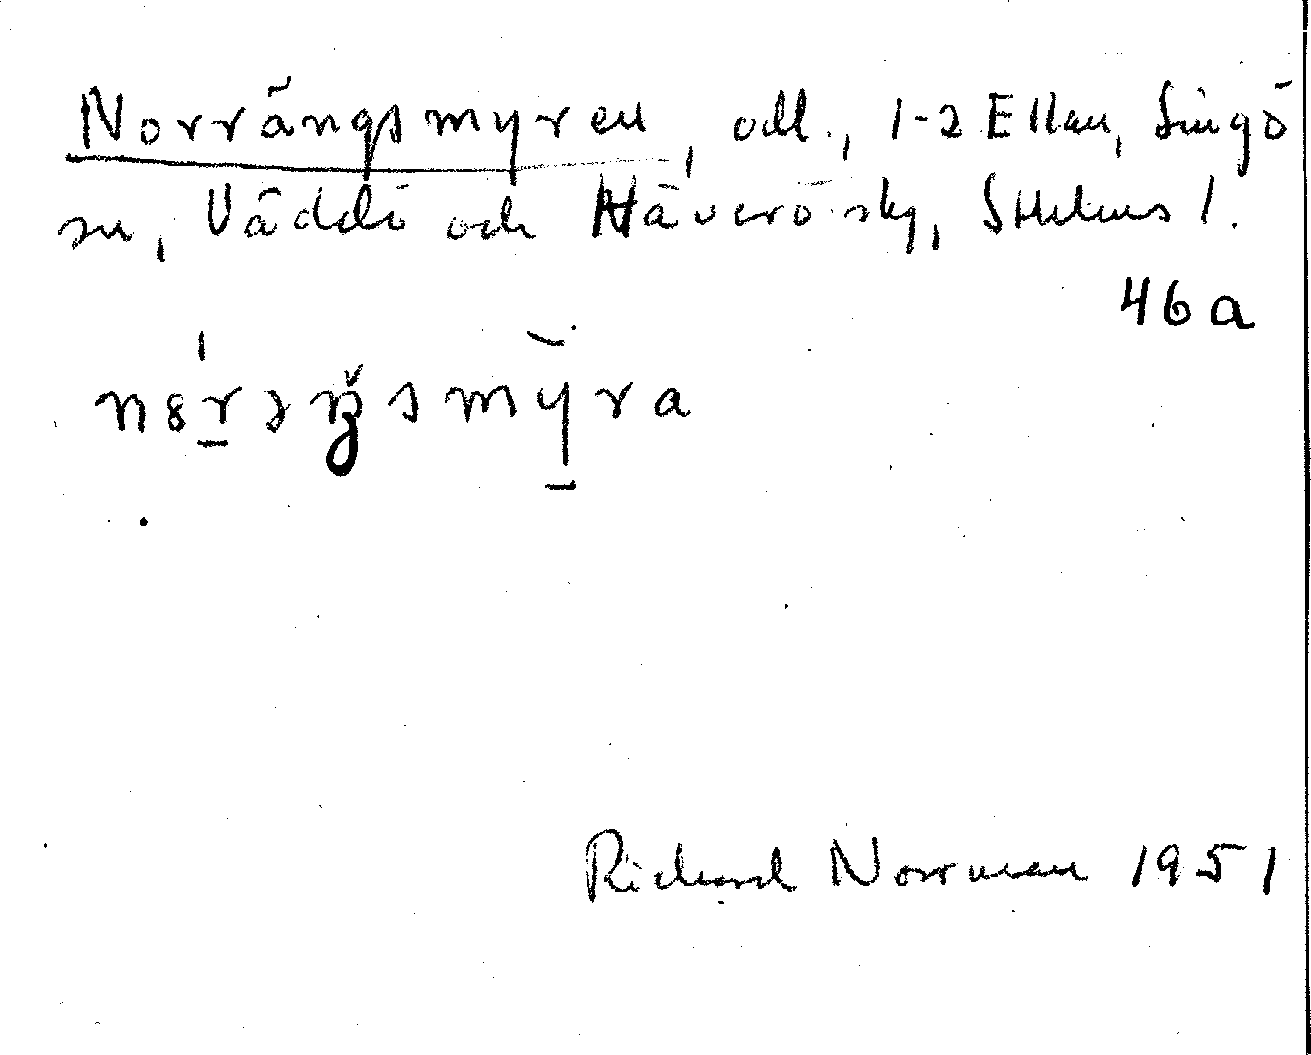 Norrängsmyren, odl., 1-2 Ellan, Singö
sn, Väddö och Häverö skg, Sthlms l.
46 a
Richard Norrman 1951